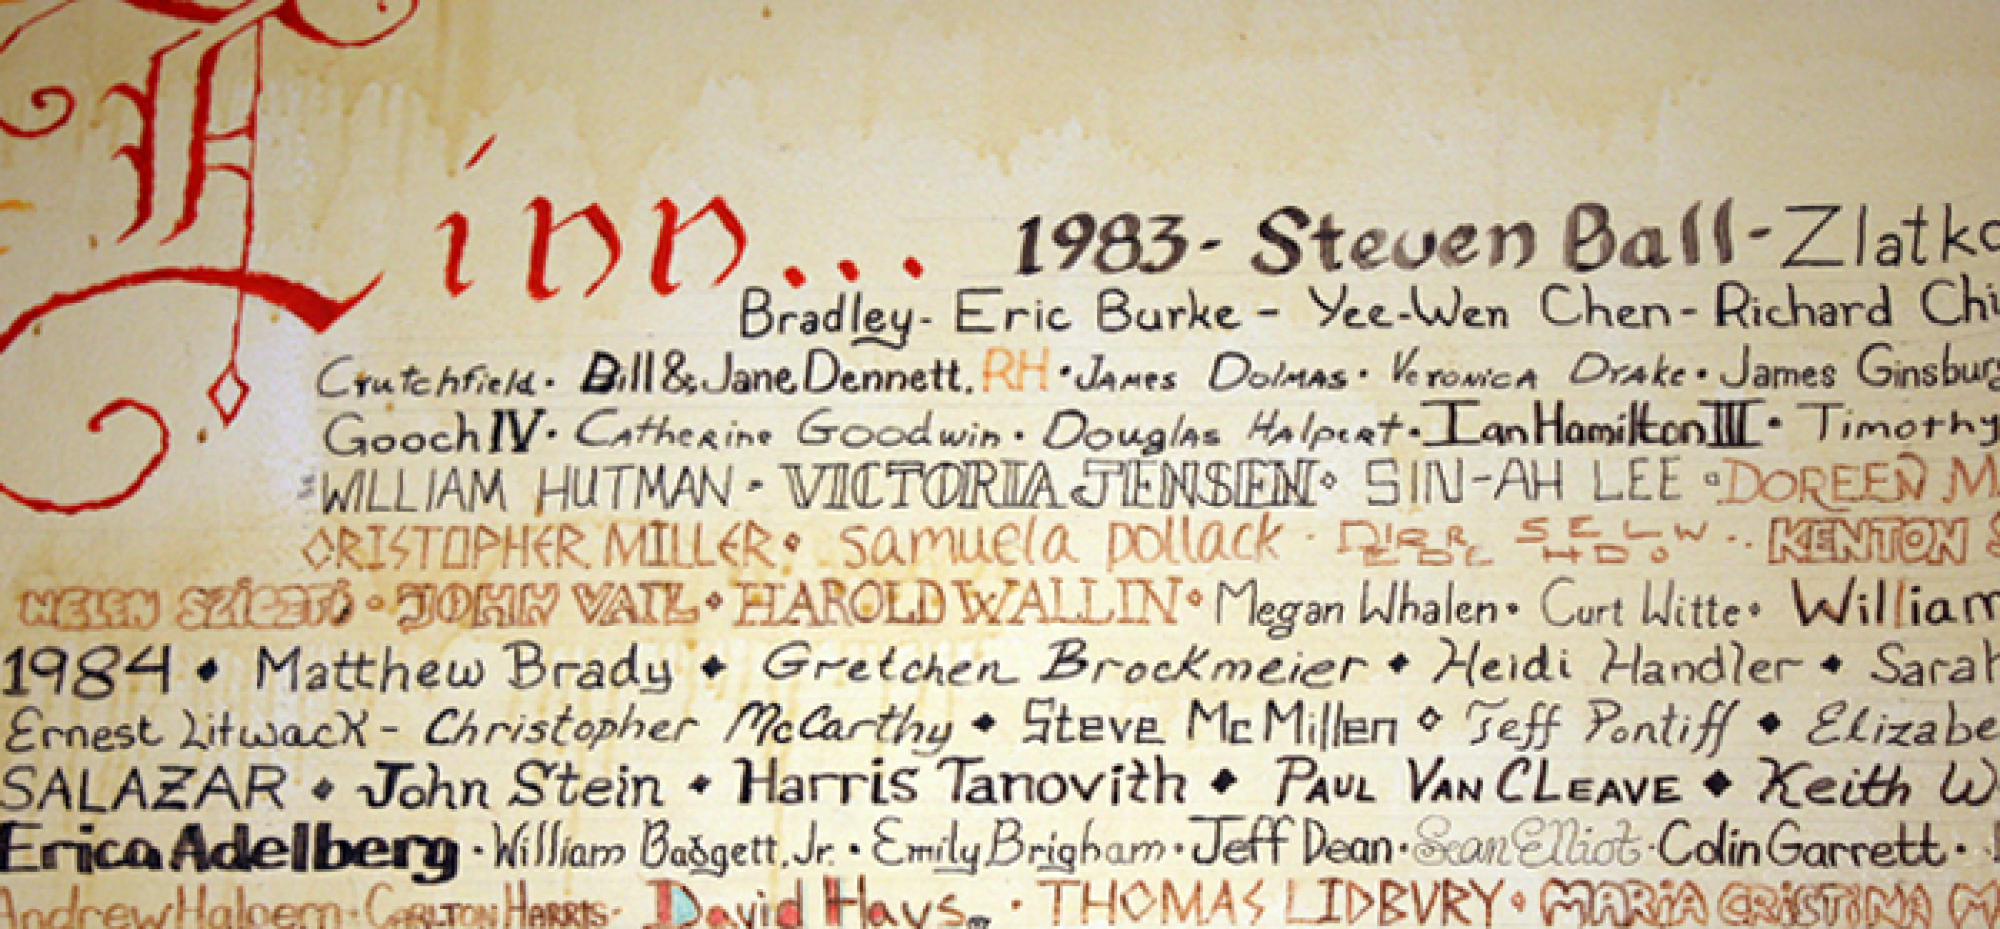 Linn... 1983- Steven Ball-Zlatko
Bradley- Eric Burke - Yee-Wen Chen- Richard Chi
Crutchfield· Bill & Jane Dennett. RH ·James Dolmas· Veronica Drake· James Ginsburg
Gooch IV· Catherine Goodwin· Douglas Halpert· Ian Hamilton III· Timothy
WILLIAM HUTMAN - VICTORIA JENSEN· SIN-AH LEE ·DOREEN M
CRISTOPHER MILLER· samuela pollack · KENTON S
HELEN · JOHN VAIL· HAROLD WALLIN· Megan Whalen· Curt Witte· William
1984 ◆ Matthew Brady ◆ Gretchen Brockmeier ◆ Heidi Handler ◆ Sarah
Ernest Litwack - Christopher McCarthy ◆ Steve McMillen ◇ Jeff Pontiff ◆ Elizabe
SALAZAR ◆ John Stein ◆ Harris Tanovith ◆ PAUL VAN CLEAVE ◆ Keith W
Erica Adelberg ·William Badgett, Jr. · Emily Brigham· Jeff Dean· Sean Elliot· Colin Garrett·
Andrew Halpern· CARLTON HARRIS· David Hays · THOMAS LIDBVRY· MARiA CRiSTiNA M